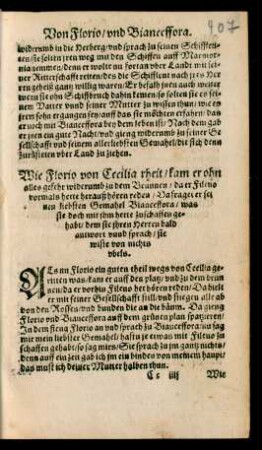 Von Florio/ vnd Bianceffora.
907
widerumb in die Herberg/ vnd sprach zu seinen Schiffleu-
ten/ sie solten jren weg mit den Schiffen auff Marmor-
nia nemmen/ denn er wolte nu fortan vber Landt mit sei-
ner Ritterschafft reiten/ des die Schiffleut nach jres Her-
ren geheiß gantz willig waren/ Er befalh jnen auch weiter
wenn sie on Schiffbruch dahin kemen/ so solten sie es sei-
nem Vatter vnnd seiner Mutter zu wissen thun/ wie es
jrem sohn ergangen sey/ auff das sie möchten erfahren/ das
er noch mit Bianceffora bey dem leben ist/ Nach dem gab
er jnen ein gute Nacht/ vnd gieng widerumb zu seiner Ge-
sellschafft vnd seinem allerliebsten Gemahel/ die sich denn
zurüsteten vber Land zu ziehen.
Wie Florio von Cecilia rheit/ kam er ohn
alles gefehr widerumb zu dem Brunnen/ da er Fileno
vormals hette herauß hören reden/ Da fraget er sei-
nen liebsten Gemahel Bianceffora/ was
sie doch mit jhm hette zuschaffen ge-
habt/ dem sie jhren Herren bald
antwort vnnd sprach/ sie
wiste von nichts
vbels.
ALs nu Florio ein guten theil wegs von Cecilia ge-
ritten was/ kam er auff den platz/ vnd zu dem brun-
nen/ da er vorhin Fileno het hören reden/ Da hielt
er mit seiner Gesellschafft still/ vnd stiegen alle ab
von den Rossen/ vnd bunden die an die bäum. Da gieng
Florio vnd Bianceffora auff dem grünen plan spatzieren/
In dem fieng Florio an vnd sprach zu Bianceffora/ nu sag
mir mein liebster Gemahel/ hastu je etwas mit Fileno zu
schaffen gehabt/ so sag mirs/ Sie sprach zu jm gantz nichts/
denn auff ein zeit gab ich jm ein binden von meinem haupt/
das must ich deiner Mutter halben thun.
Cc iiij
Wie